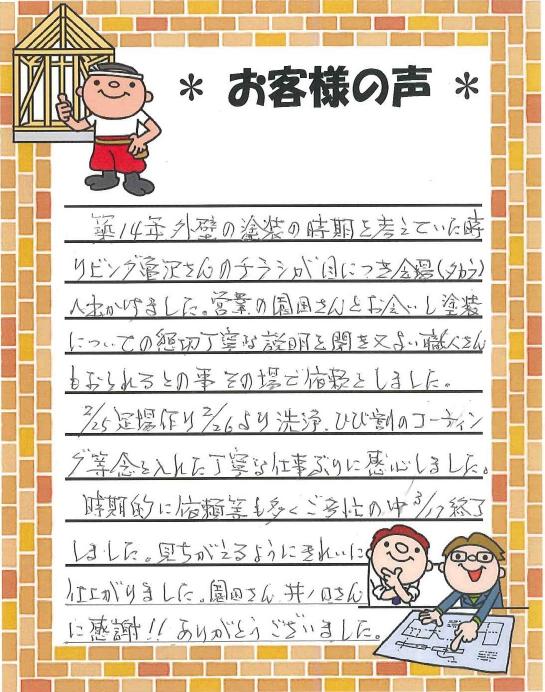 ＊ お客様の声 ＊
築14年外壁の塗装の時期を考えていた時
リビング亀沢さんのチラシが目につき会場(タカラ)
へ出かけました。営業の園田さんとお会いし塗装
についての懇切丁寧な説明を聞き又よい職人さん
もおられるとの事 その場で依頼としました。
2/25 足場作り 2/26より洗浄、ひび割のコーティン
グ等念を入れた丁寧な仕事ぶりに感心しました。
時期的に依頼等も多くご多忙の中 3/17終了
しました。見ちがえるようにきれいに
仕上がりました。園田さん、井ノ口さん
に感謝!! ありがとうございました。